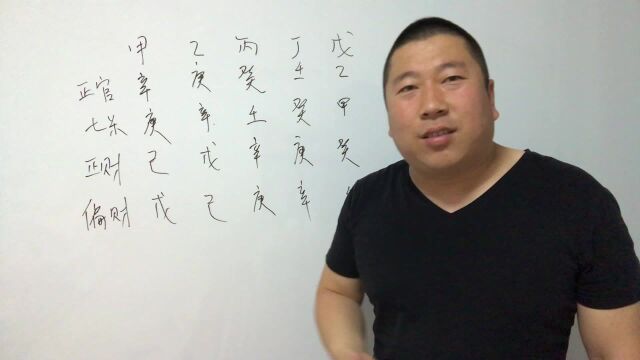 甲 乙 丙 丁 戊
正官 辛 庚 癸 壬 乙
七杀 庚 辛 壬 癸 甲
正财 己 戊 辛 庚 癸
偏财 戊 己 庚 辛